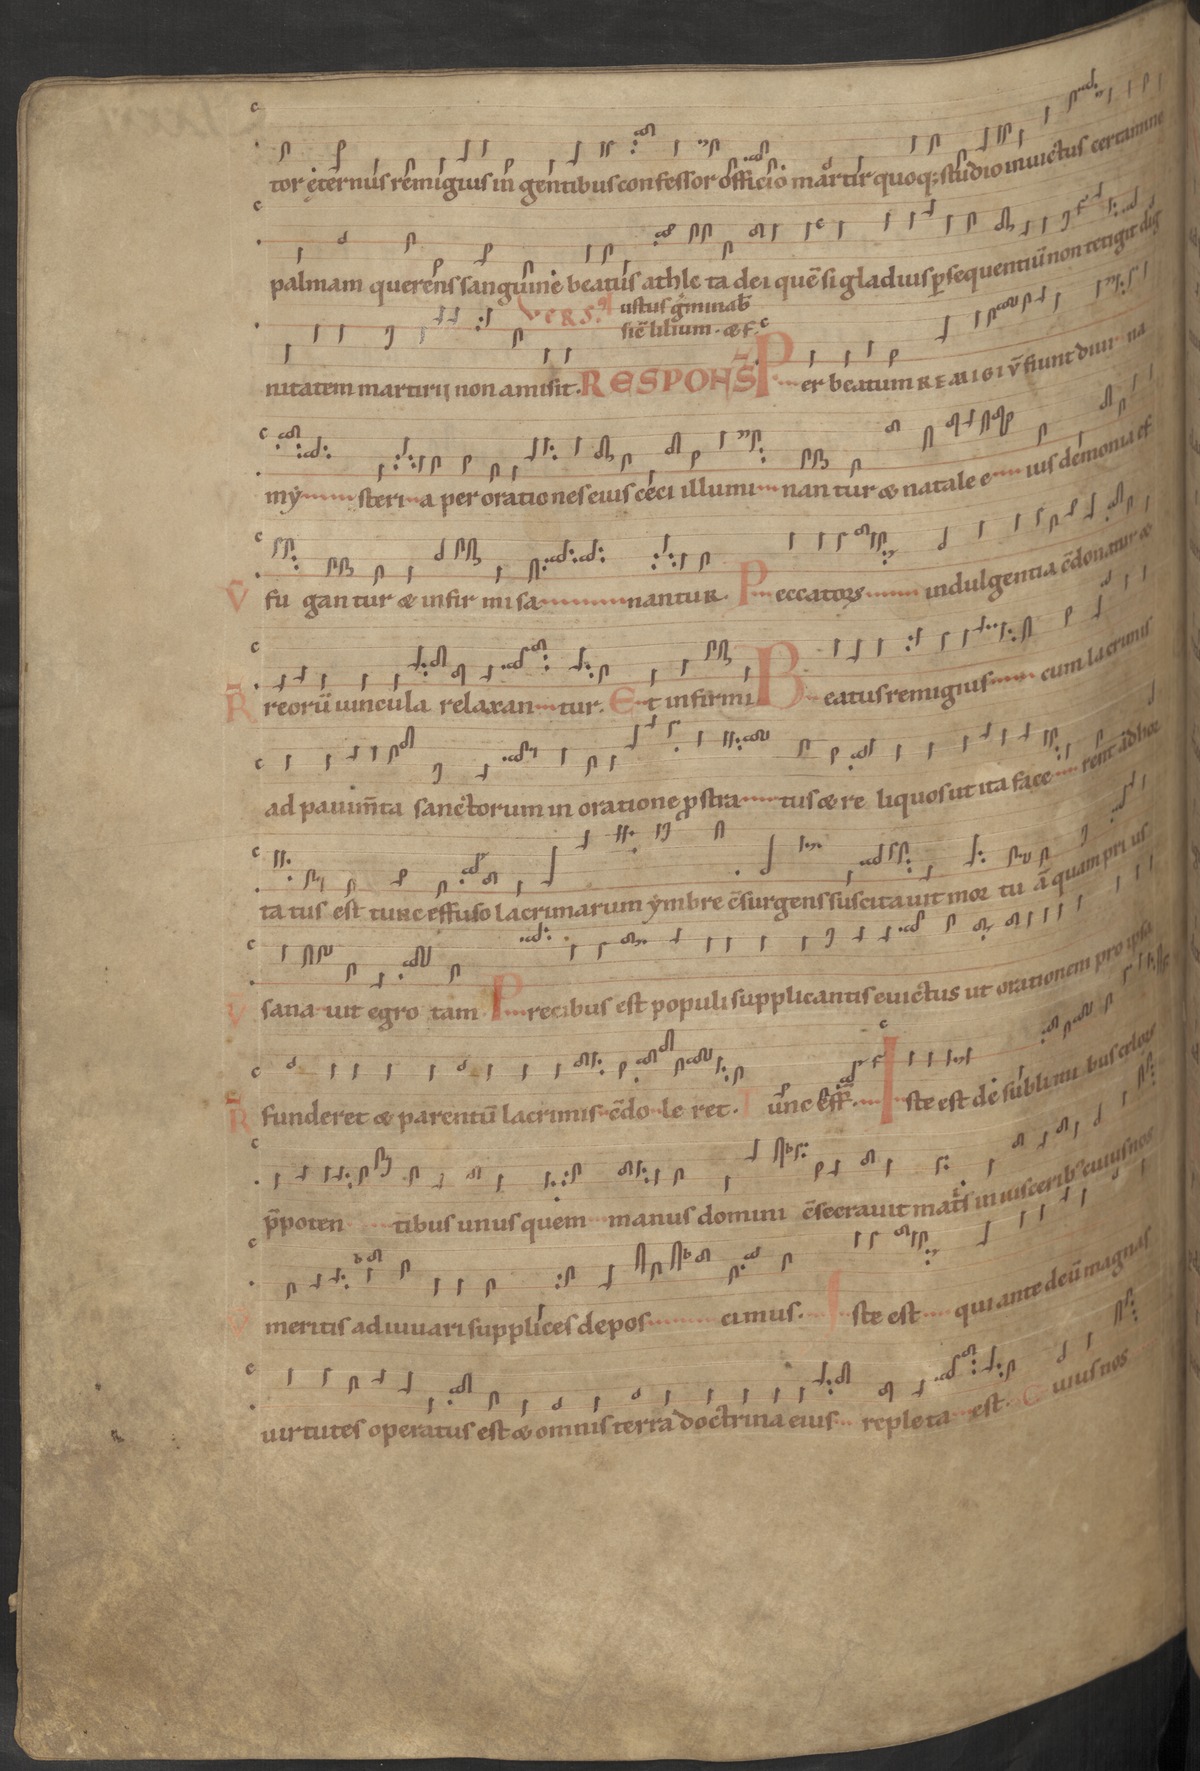 tor ęternus remigius in gentibus confessor officio martir quoq; studio inuictus certamine
palmam querens sanguine beatus athle ta dei quē si gladius ꝑsequentiū non tetigit dig
VERS. Iustus g̃minab̄
nitatem martirii non amisit. sic̄ lilium. & f. RESPONS̄ Per beatum REMIGIV̄ fiunt diui na
my steri a per oratio nes eius ceci illumi nan tur & natale e ius demonia ef
V̄ fu gan tur & infir mi sa nantur. Peccators indulgentia c̄donatur &
R̄ reorū uincula relaxan tur. Et infirmi Beatus remigius cum lacrimis
ad pauim̄ta sanctorum in oratione ꝓstra tus & re liquos ut ita face rent adhor
ta tus est tunc effuso lacrimarum ymbre c̄surgens suscitauit mor tu ā quam pri us
V sana uit egro tam Precibus est populi supplicantis euictus ut orationem pro ipsa
R̄ funderet & parentū lacrimis c̄do le ret. Tunc eff̄. Iste est de sublimi bus celors
p̄poten tibus unus quem manus domini c̄secrauit mat̄s in uisceribꝰ cuius nos
V meritis adiuuari supplices depos cimus. Iste est qui ante deū magnas
uirtutes operatus est & omnis terra doctrina eius repleta est. Cuius nos